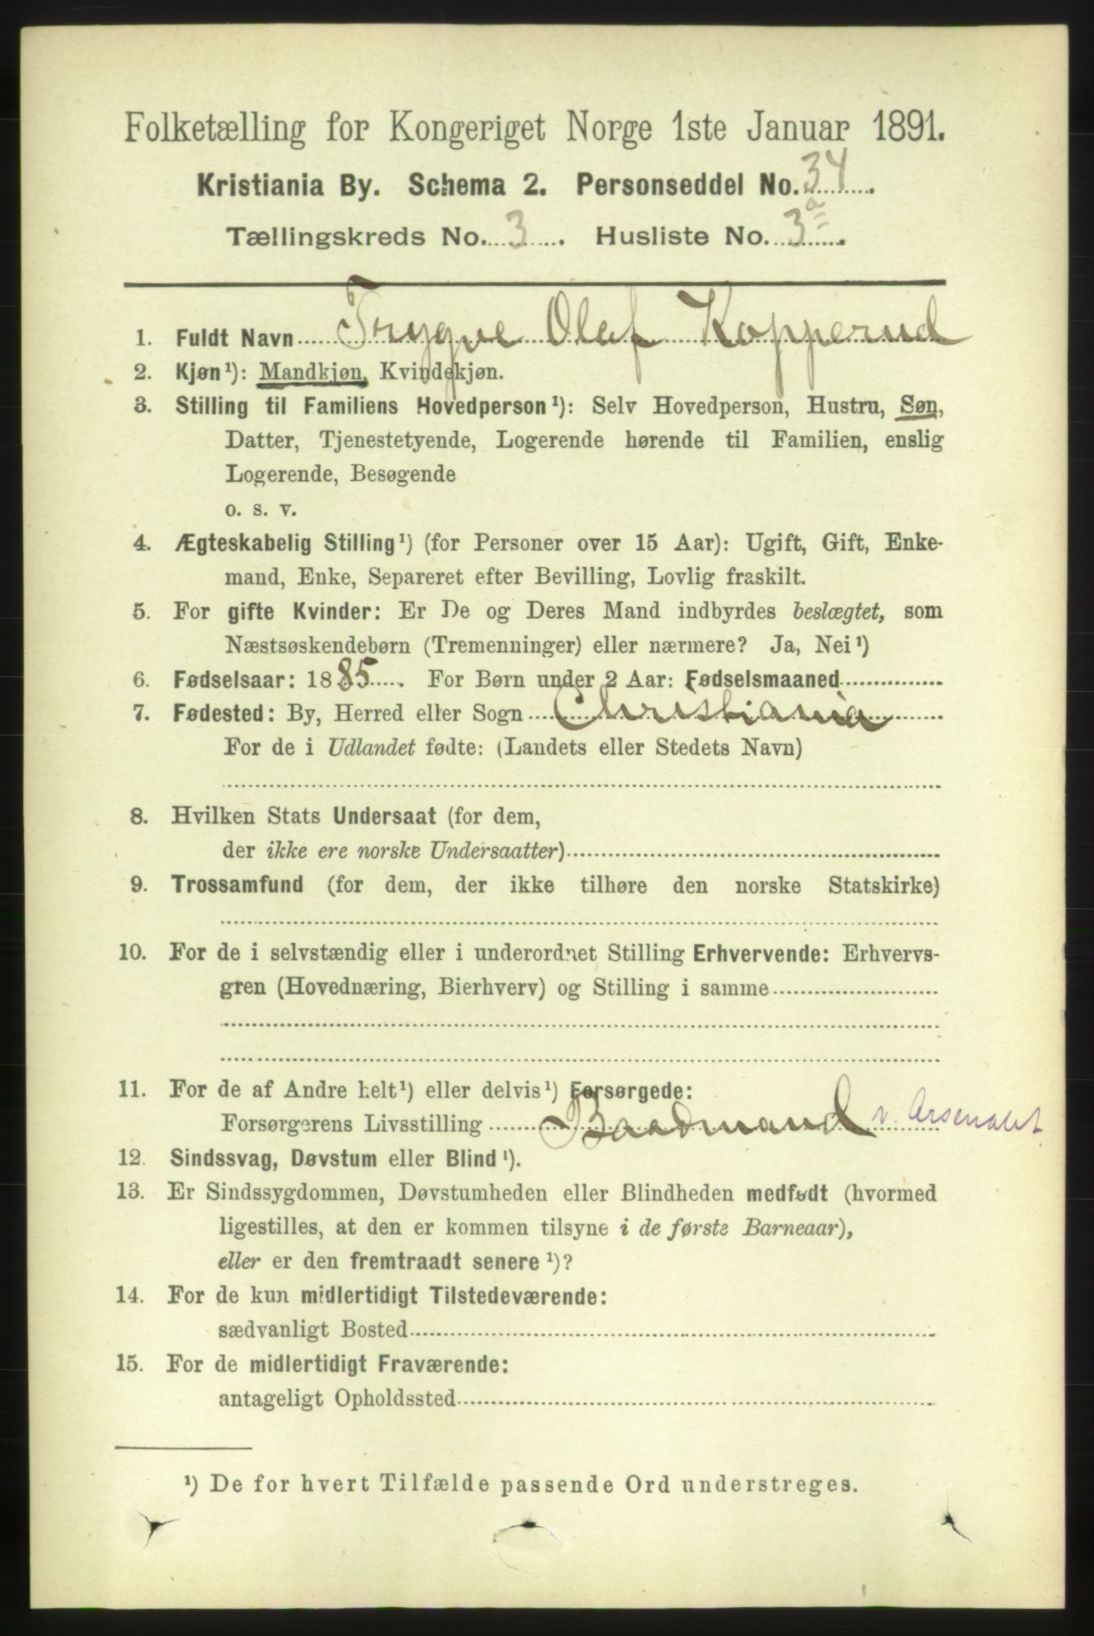 Folketælling for Kongeriget Norge 1ste Januar 1891.
Kristiania By. Schema 2. Personseddel No. 34.
Tællingskreds No. 3. Husliste No. 3a.
1. Fuldt Navn Trygve Olaf Kopperud
2. Kjøn¹): Mandkjøn, Kvindekjøn.
3. Stilling til Familiens Hovedperson¹): Selv Hovedperson, Hustru, Søn,
Datter, Tjenestetyende, Logerende hørende til Familien, enslig
Logerende, Besøgende
o. s. v.
4. Ægteskabelig Stilling¹) (for Personer over 15 Aar): Ugift, Gift, Enke-
mand, Enke, Separeret efter Bevilling, Lovlig fraskilt.
5. For gifte Kvinder: Er De og Deres Mand indbyrdes beslægtet, som
Næstsøskendebørn (Tremenninger) eller nærmere? Ja, Nei¹)
6. Fødselsaar: 1885. For Børn under 2 Aar: Fødselsmaaned
7. Fødested: By, Herred eller Sogn Christiania
For de i Udlandet fødte: (Landets eller Stedets Navn)
8. Hvilken Stats Undersaat (for dem,
der ikke ere norske Undersaatter)
9. Trossamfund (for dem, der ikke tilhøre den norske Statskirke)
10. For de i selvstændig eller i underordnet Stilling Erhvervende: Erhvervs-
gren (Hovednæring, Bierhverv) og Stilling i samme
11. For de af Andre helt¹) eller delvis¹) Forsørgede:
Forsørgerens Livsstilling Baadmand v. Arsenalet
12. Sindssvag, Døvstum eller Blind¹).
13. Er Sindssygdommen, Døvstumheden eller Blindheden medfødt (hvormed
ligestilles, at den er kommen tilsyne i de første Barneaar),
eller er den fremtraadt senere¹)?
14. For de kun midlertidigt Tilstedeværende:
sædvanligt Bosted
15. For de midlertidigt Fraværende:
antageligt Opholdssted
¹) De for hvert Tilfælde passende Ord understreges.